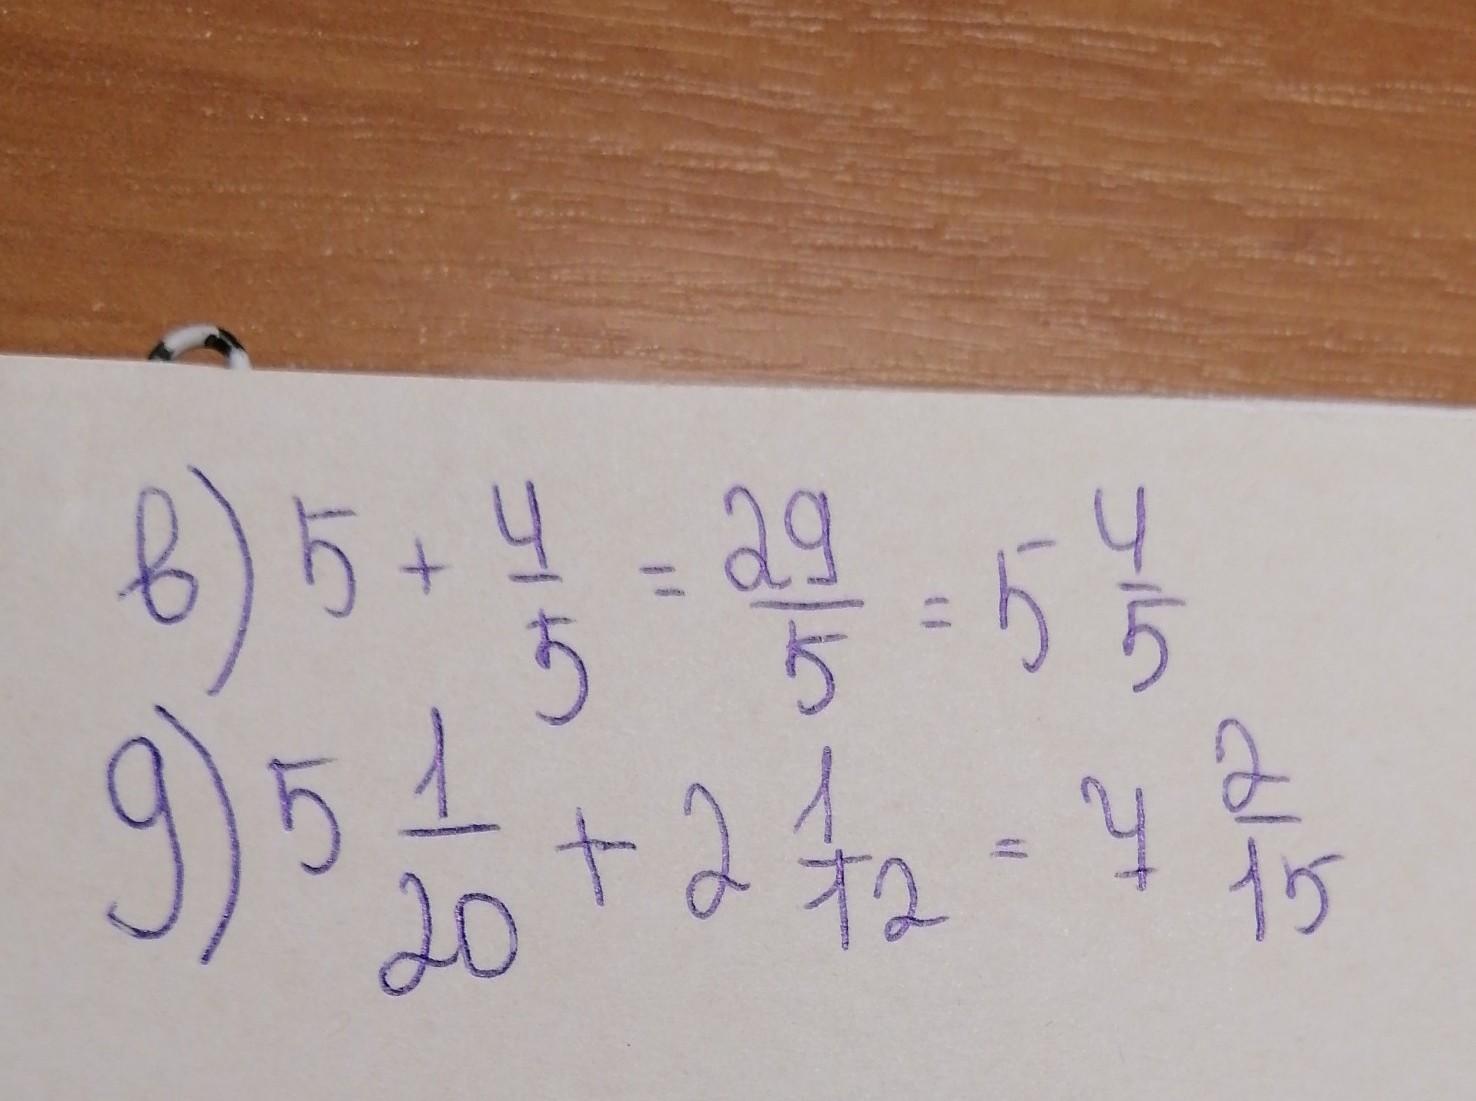 в) 5 + 4/5 = 29/5 = 5 4/5
д) 5 1/20 + 2 1/12 = 7 2/15